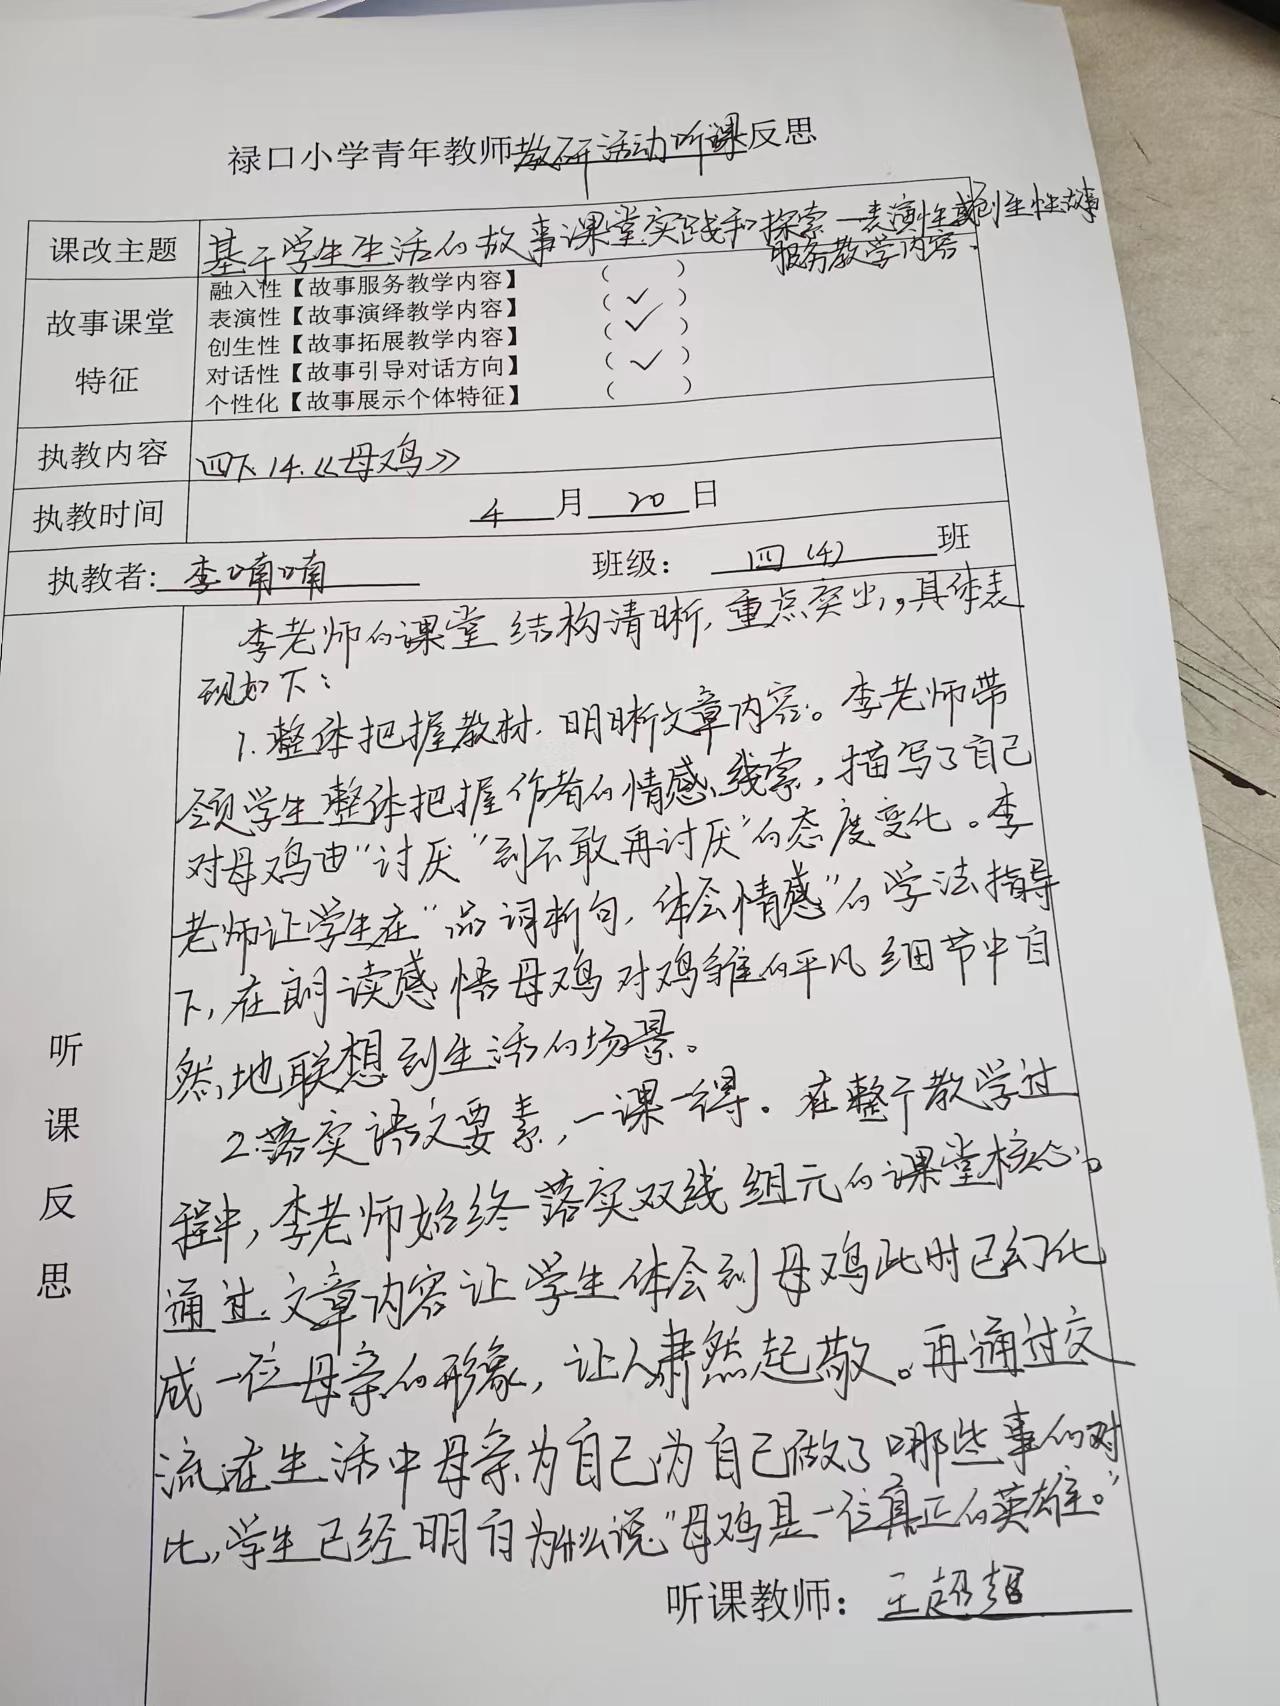 禄口小学青年教师教研活动听课反思
课改主题 基于学生生活的故事课堂实践和探索—表演性或创生性故事
服务教学内容.
故事课堂
特征
融入性【故事服务教学内容】 ( )
表演性【故事演绎教学内容】 (✓)
创生性【故事拓展教学内容】 (✓)
对话性【故事引导对话方向】 (✓)
个性化【故事展示个体特征】 ( )
执教内容 四下.14.《母鸡》
执教时间 4月20日
执教者: 李喃喃 班级: 四(4)班
听课反思
李老师的课堂结构清晰,重点突出,。具体表
现如下:
1.整体把握教材,明晰文章内容。李老师带
领学生整体把握作者的情感线索,描写了自己
对母鸡由“讨厌”到不敢再讨厌”的态度变化。李
老师让学生在“品词析句,体会情感”的学法指导
下,在朗读感悟母鸡对鸡雏的平凡细节中自
然地联想到生活的场景。
2.落实语文要素,一课一得。在整个教学过
程中,李老师始终落实双线组元的课堂核心。
通过文章内容让学生体会到母鸡此时已幻化
成一位母亲的形象,让人肃然起敬。再通过交
流在生活中母亲为自己为自己做了哪些事的对
比,学生已经明白为什么说“母鸡是一位真正的英雄。”
听课教师: 王超超